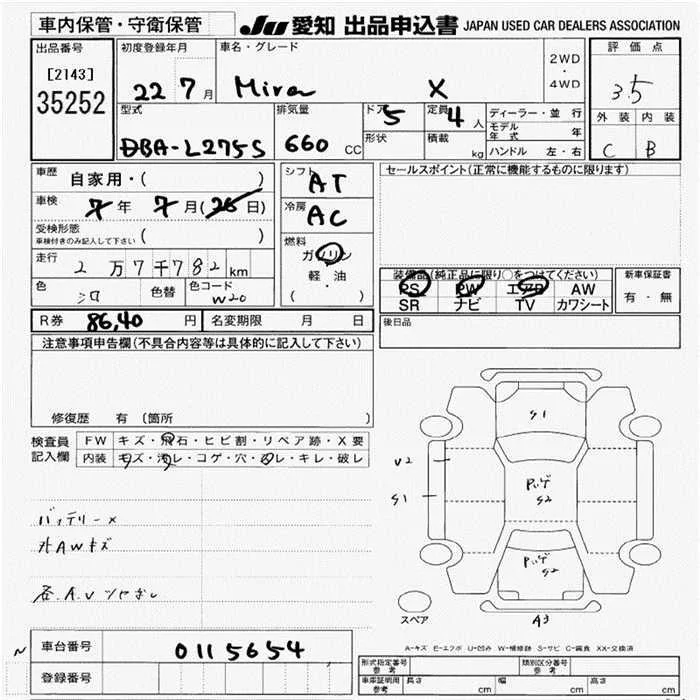 車内保管・守衛保管
JU 愛知 出品申込書 JAPAN USED CAR DEALERS ASSOCIATION
出品番号
[2143]
35252
初度登録年月
22 7月
車名・グレード
Mira X
2WD
・
4WD
評価点
3.5
外装 内装
C B
型式
DBA-L275S
排気量
660 CC
ドア 5
形状
定員 4人
積載 kg
ディーラー・並行
モデル年式 年
ハンドル 左・右
車歴
自家用・( )
車検
7年 7月(26日)
受検形態
車検付きのみ記入して下さい ( )
走行
2万7千782km
色
シロ
色替
色コード
W20
シフト
AT
冷房
AC
燃料
ガソリン
軽・油
( )
セールスポイント(正常に機能するものに限ります)
装備品(純正品に限り○をつけてください)
PS PW エアB AW
SR ナビ TV カワシート
新車保証書
有・無
後日品
R券 86,40 円 名変期限 月 日
注意事項申告欄(不具合内容等は具体的に記入して下さい)
修復歴 有 (箇所
検査員
記入欄
FW キズ・飛石・ヒビ割・リペア跡・X要
内装 キズ・汚レ・コゲ・穴・ヌレ・キレ・破レ
バッテリーX
外AWキズ
S1
U2
S1
S2
S2
A3
スペア
A-キズ E-エクボ U-凹み W-補修跡 S-サビ C-腐食 XX-交換済
車台番号 0115654
登録番号
形式指定番号
参考
類別区分番号
参考
車庫証明用
参考
長さ cm 幅 cm 高さ cm